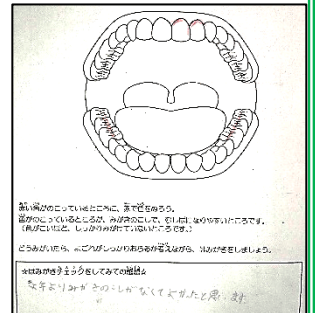 赤い色がのこっているところに、赤で色をぬろう。
色がのこっているところが、みがきのこしで、むしばになりやすいところです。
(色がこいほど、しっかりみがけていないところです。)
どうみがいたら、よごれがしっかりおちるか考えながら、はみがきをしましょう。
☆はみがきチェックをしてみての感想☆
よりみがきのこしがなくてよかったと思います